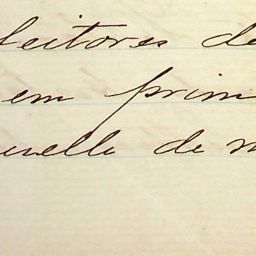 leitores de
em prim
uella de m